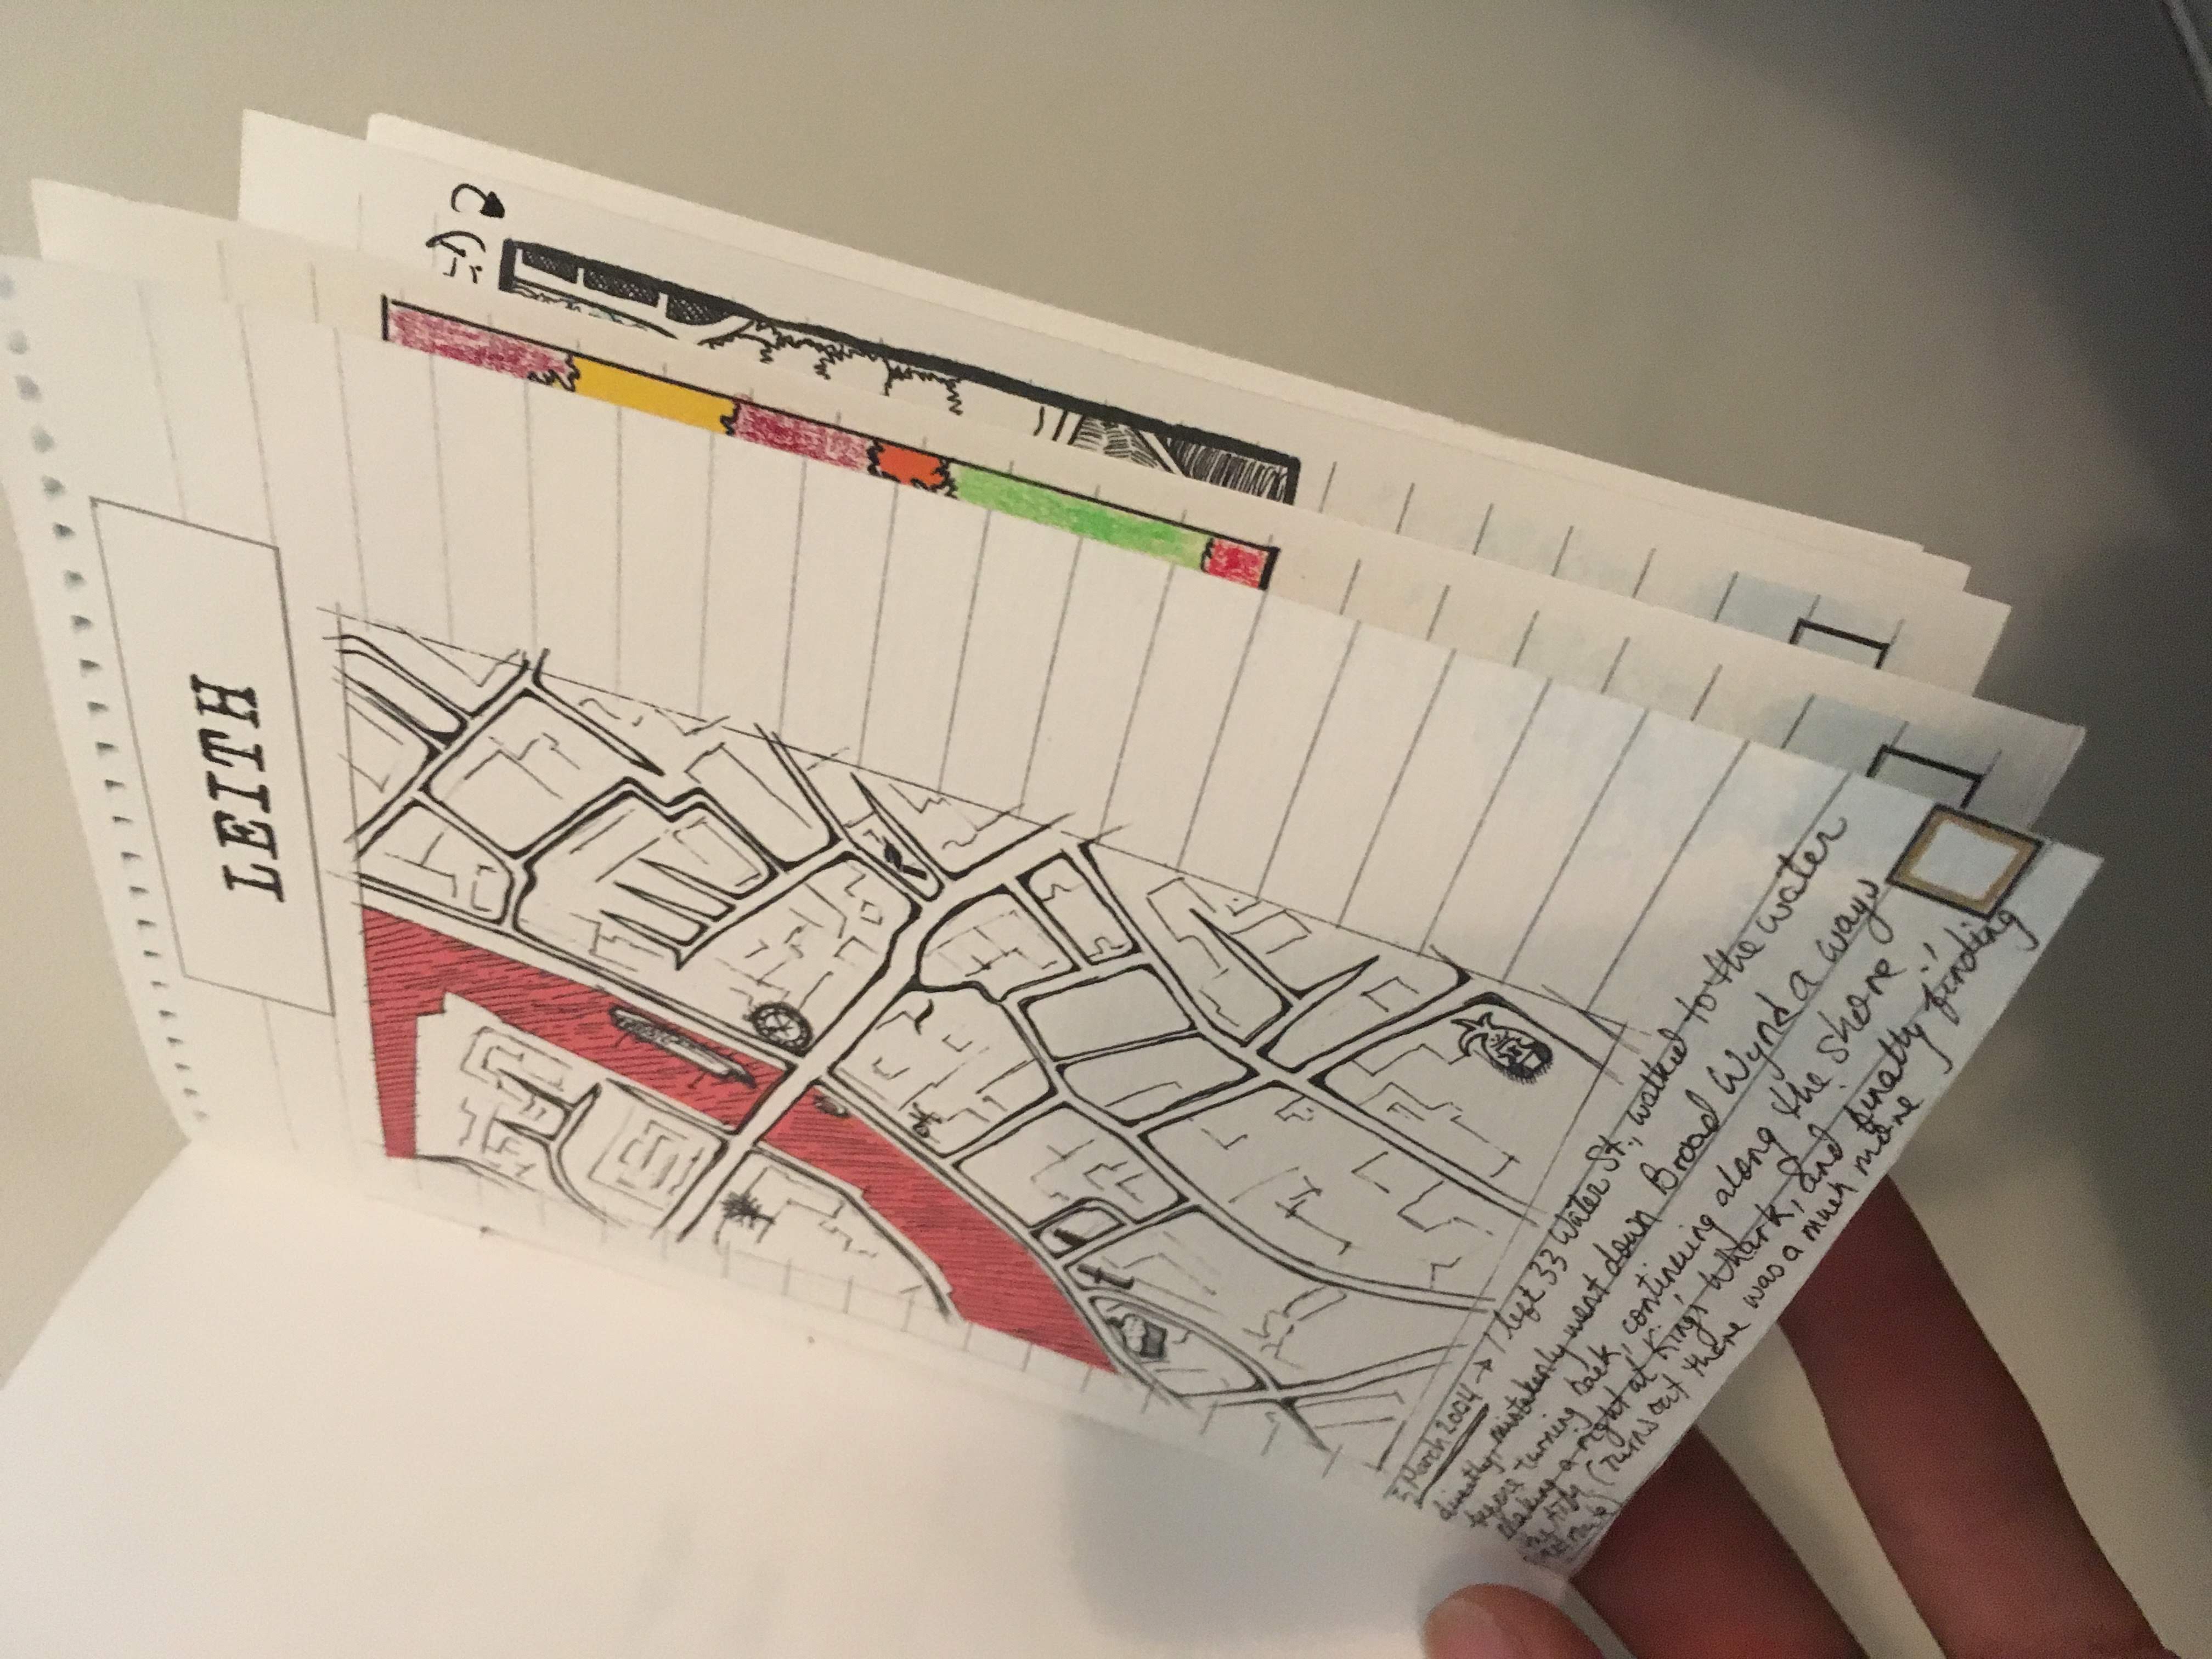 LEITH
3 March 2004 → I left 33 Water St., walked to the water
directly, mistakenly went down Broad Wynd a ways
before turning back, continuing along the shore,
making a right at Kings' Whark, and finally finding
my ATM (turns out there was a much more